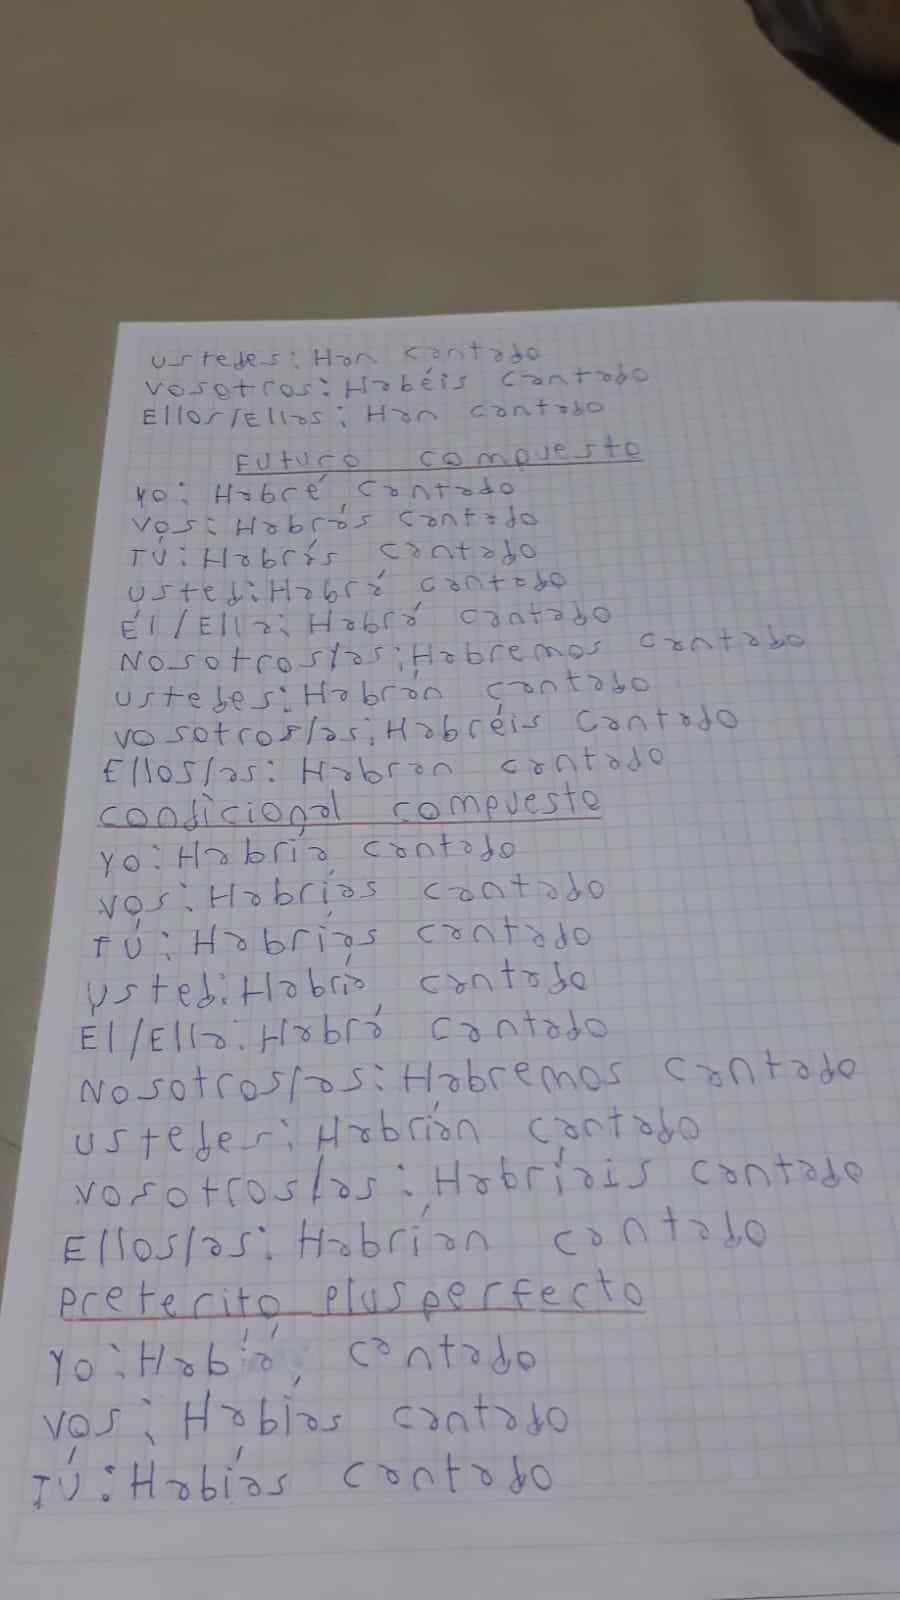 Ustedes: Han cantado
Vosotros: Habéis cantado
Ellos/Ellas: Han cantado
Futuro compuesto
Yo: Habré cantado
Vos: Habrás cantado
TÚ: Habrás cantado
Usted: Habrá cantado
Él/Ella: Habrá cantado
Nosotros/as: Habremos cantado
Ustedes: Habrán cantado
Vosotros/as: Habréis cantado
Ellos/as: Habran cantado
Condicional compuesto
Yo: Habria cantado
Vos: Habrías cantado
TÚ: Habrías cantado
Usted: Habría cantado
El/Ella: Habrá cantado
Nosotros/as: Habremos cantado
Ustedes: Habrían cantado
Vosotros/as: Habríais cantado
Ellos/as: Habrían cantado
Preterito plusperfecto
Yo: Había cantado
Vos: Habías cantado
TÚ: Habías cantado